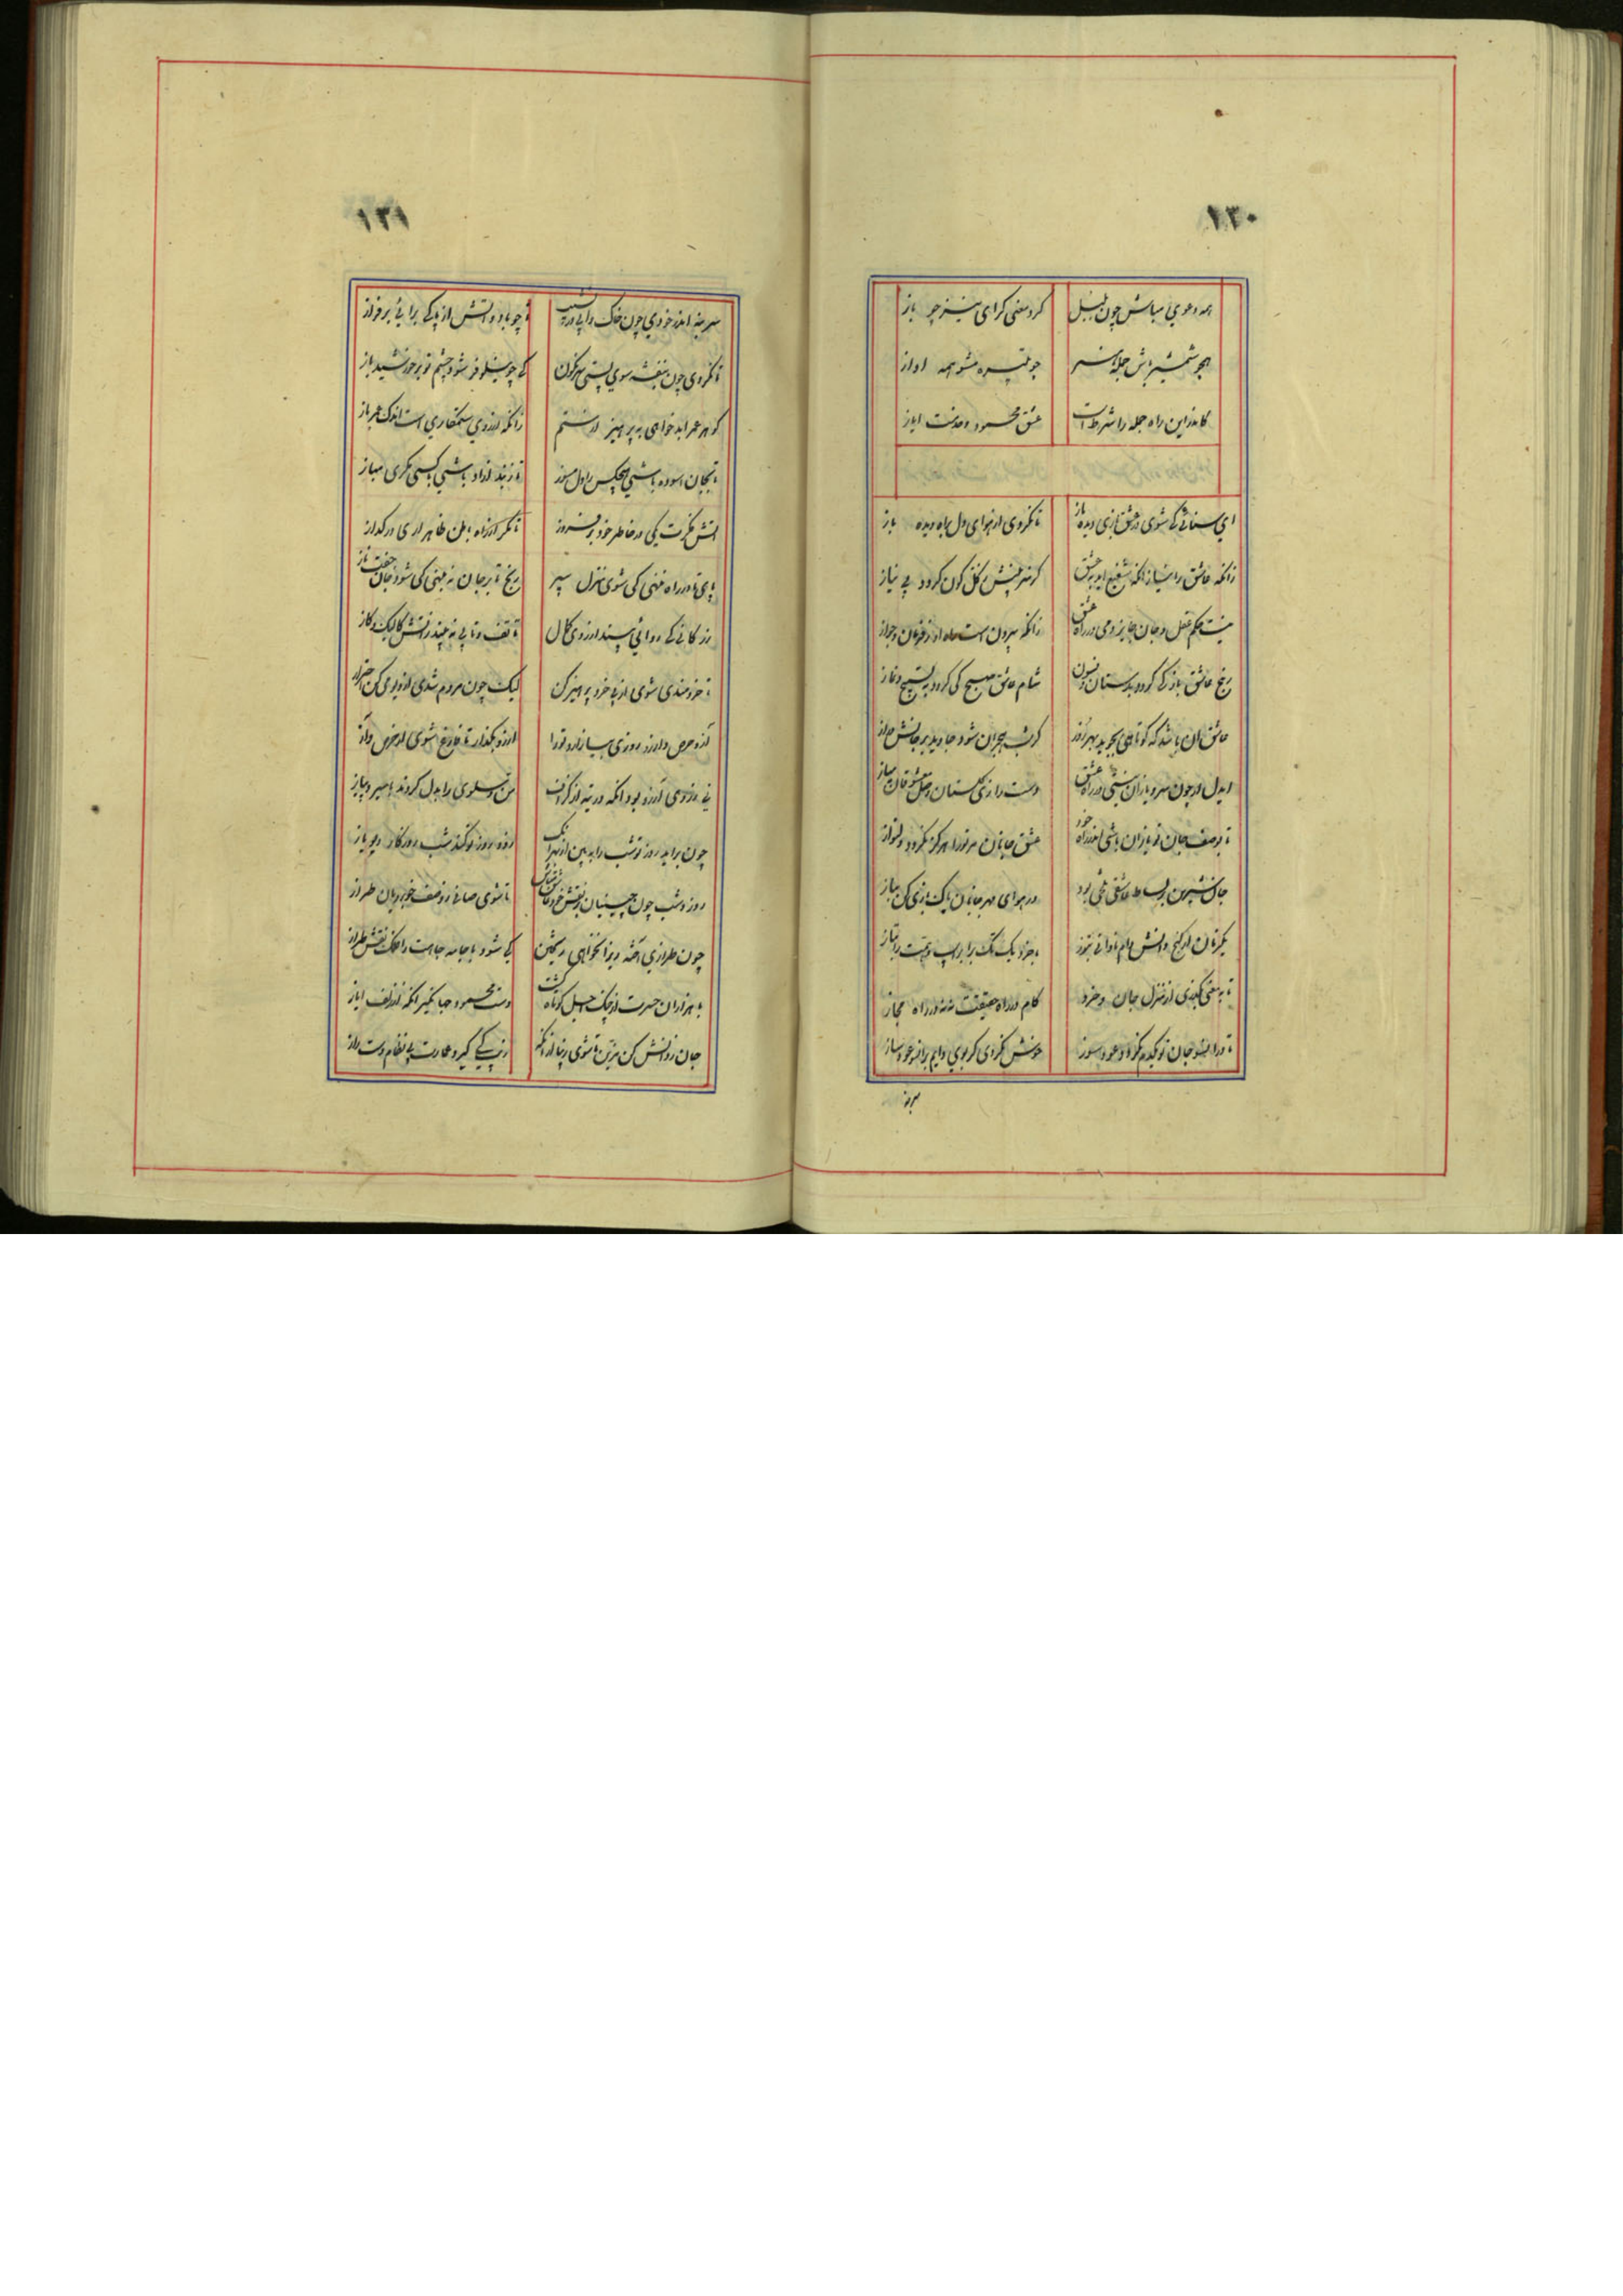 ۱۳۰
همه دعوی مباش چون بلبل گرد معنی گرای نیز چو باز
همچو شمشیر باش جمله هنر چو تبیره مشو همه اواز
کاندرین راه جمله را شرط است عشق محمود و خدمت ایاز
ای سنائی کی شوی در عشق بازی دیده باز تا نگردی از هوای دل براه دیده باز
زانکه عاشق را نیاز انکه شفیع اید به عشق کز سر بینش ز کل کون گردد بی نیاز
نیست حکم عقل و جان جایز دمی در راه عشق زانکه بیرون است راه او ز فرمان و جواز
رنج عاشق باز کی گردد بدستان و فسون شام عاشق صبح کی گردد به تسبیح و نماز
عاشق ان باشد که کوتاهی نجوید بهر روز گر شب هجران شود جاوید بر جانش دراز
ایدل ار چون سرو یازان نیستی در راه عشق دست را زی گلستان وصل معشوقان میاز
تا بوصف جان تو یازان باشی اندر راه خود عشق جانان مر تو را هرگز نگردد دلنواز
جان شیرین بر بساط عاشقی تلخی بود در هوای مهر جانان پاک بازی کن بباز
یکزمان از رنج دانش وام نادانی بتوز با خرد یک تک برابر اسب همت را بتاز
تا به معنی نگذری از منزل جان و خرد گام در راه حقیقت نه نه در راه مجاز
تا در اتش جان تو یکدم نگردد عود سوز خوش نگردی گر بوی دایم بر انو عود ساز
سر بنه
۱۳۱
سر بنه اندر خودی چون خاک و ابی در نشیب تا چو باد و اتش از پاکی برایی بر فراز
تا نگردی چون بنفشه سوی پستی سرنگون کی چو نیلوفر شود چشم تو بر خورشید باز
گوهر عمر ابد خواهی به پرهیز از ستم زانکه از روی ستمکاری است اندک عمر باز
تا بجان اسوده باشی هیچکس را دل مسوز تا ز بند ازاد باشی با کسی مکری مباز
اتش فکرت یکی در خاطر خود بر فروز تا مگر از راه باطن ظاهر اری در گداز
پای تا در راه ننهی کی شوی منزل سپر رنج تا بر جان نه بینی کی شود جان جفت ناز
زر کانی کی روائی بیند از روی کمال تا تف و تابی نه بیند ز اتش گالیک و گاز
تا خردمندی شوی از بی خرد پرهیز کن لیک چون مردم شدی از دیو دی کن احتراز
از و حرص و ارزو روزی بیازارد تو را ارزو بگذار تا فارغ شوی از حرص و آز
نی ز روی آرزو بود انکه در تیه از گزاف من و سلوی را بدل کردند با سیر و پیاز
چون براید روز تو شب را ببین از بهر انک روز روز تو کند شب روزگار دیو یاز
روز و شب چون چینیان بر نقش خود عاشق مباش تا شوی صافی ز وصف خوبرویان طراز
چون طرازی آخته ویرا نخواهی ریختن کی شود با جامه جاهت را محک نقش طراز
با هزاران حسرت از چنگ اجل کوتاه گشت دست محمود جهانگیر انکه از زلف ایاز
جان ز دانش کن مزین تا شوی زیبا از انکه زیب کی گیرد عمارت بی نظام دست راز